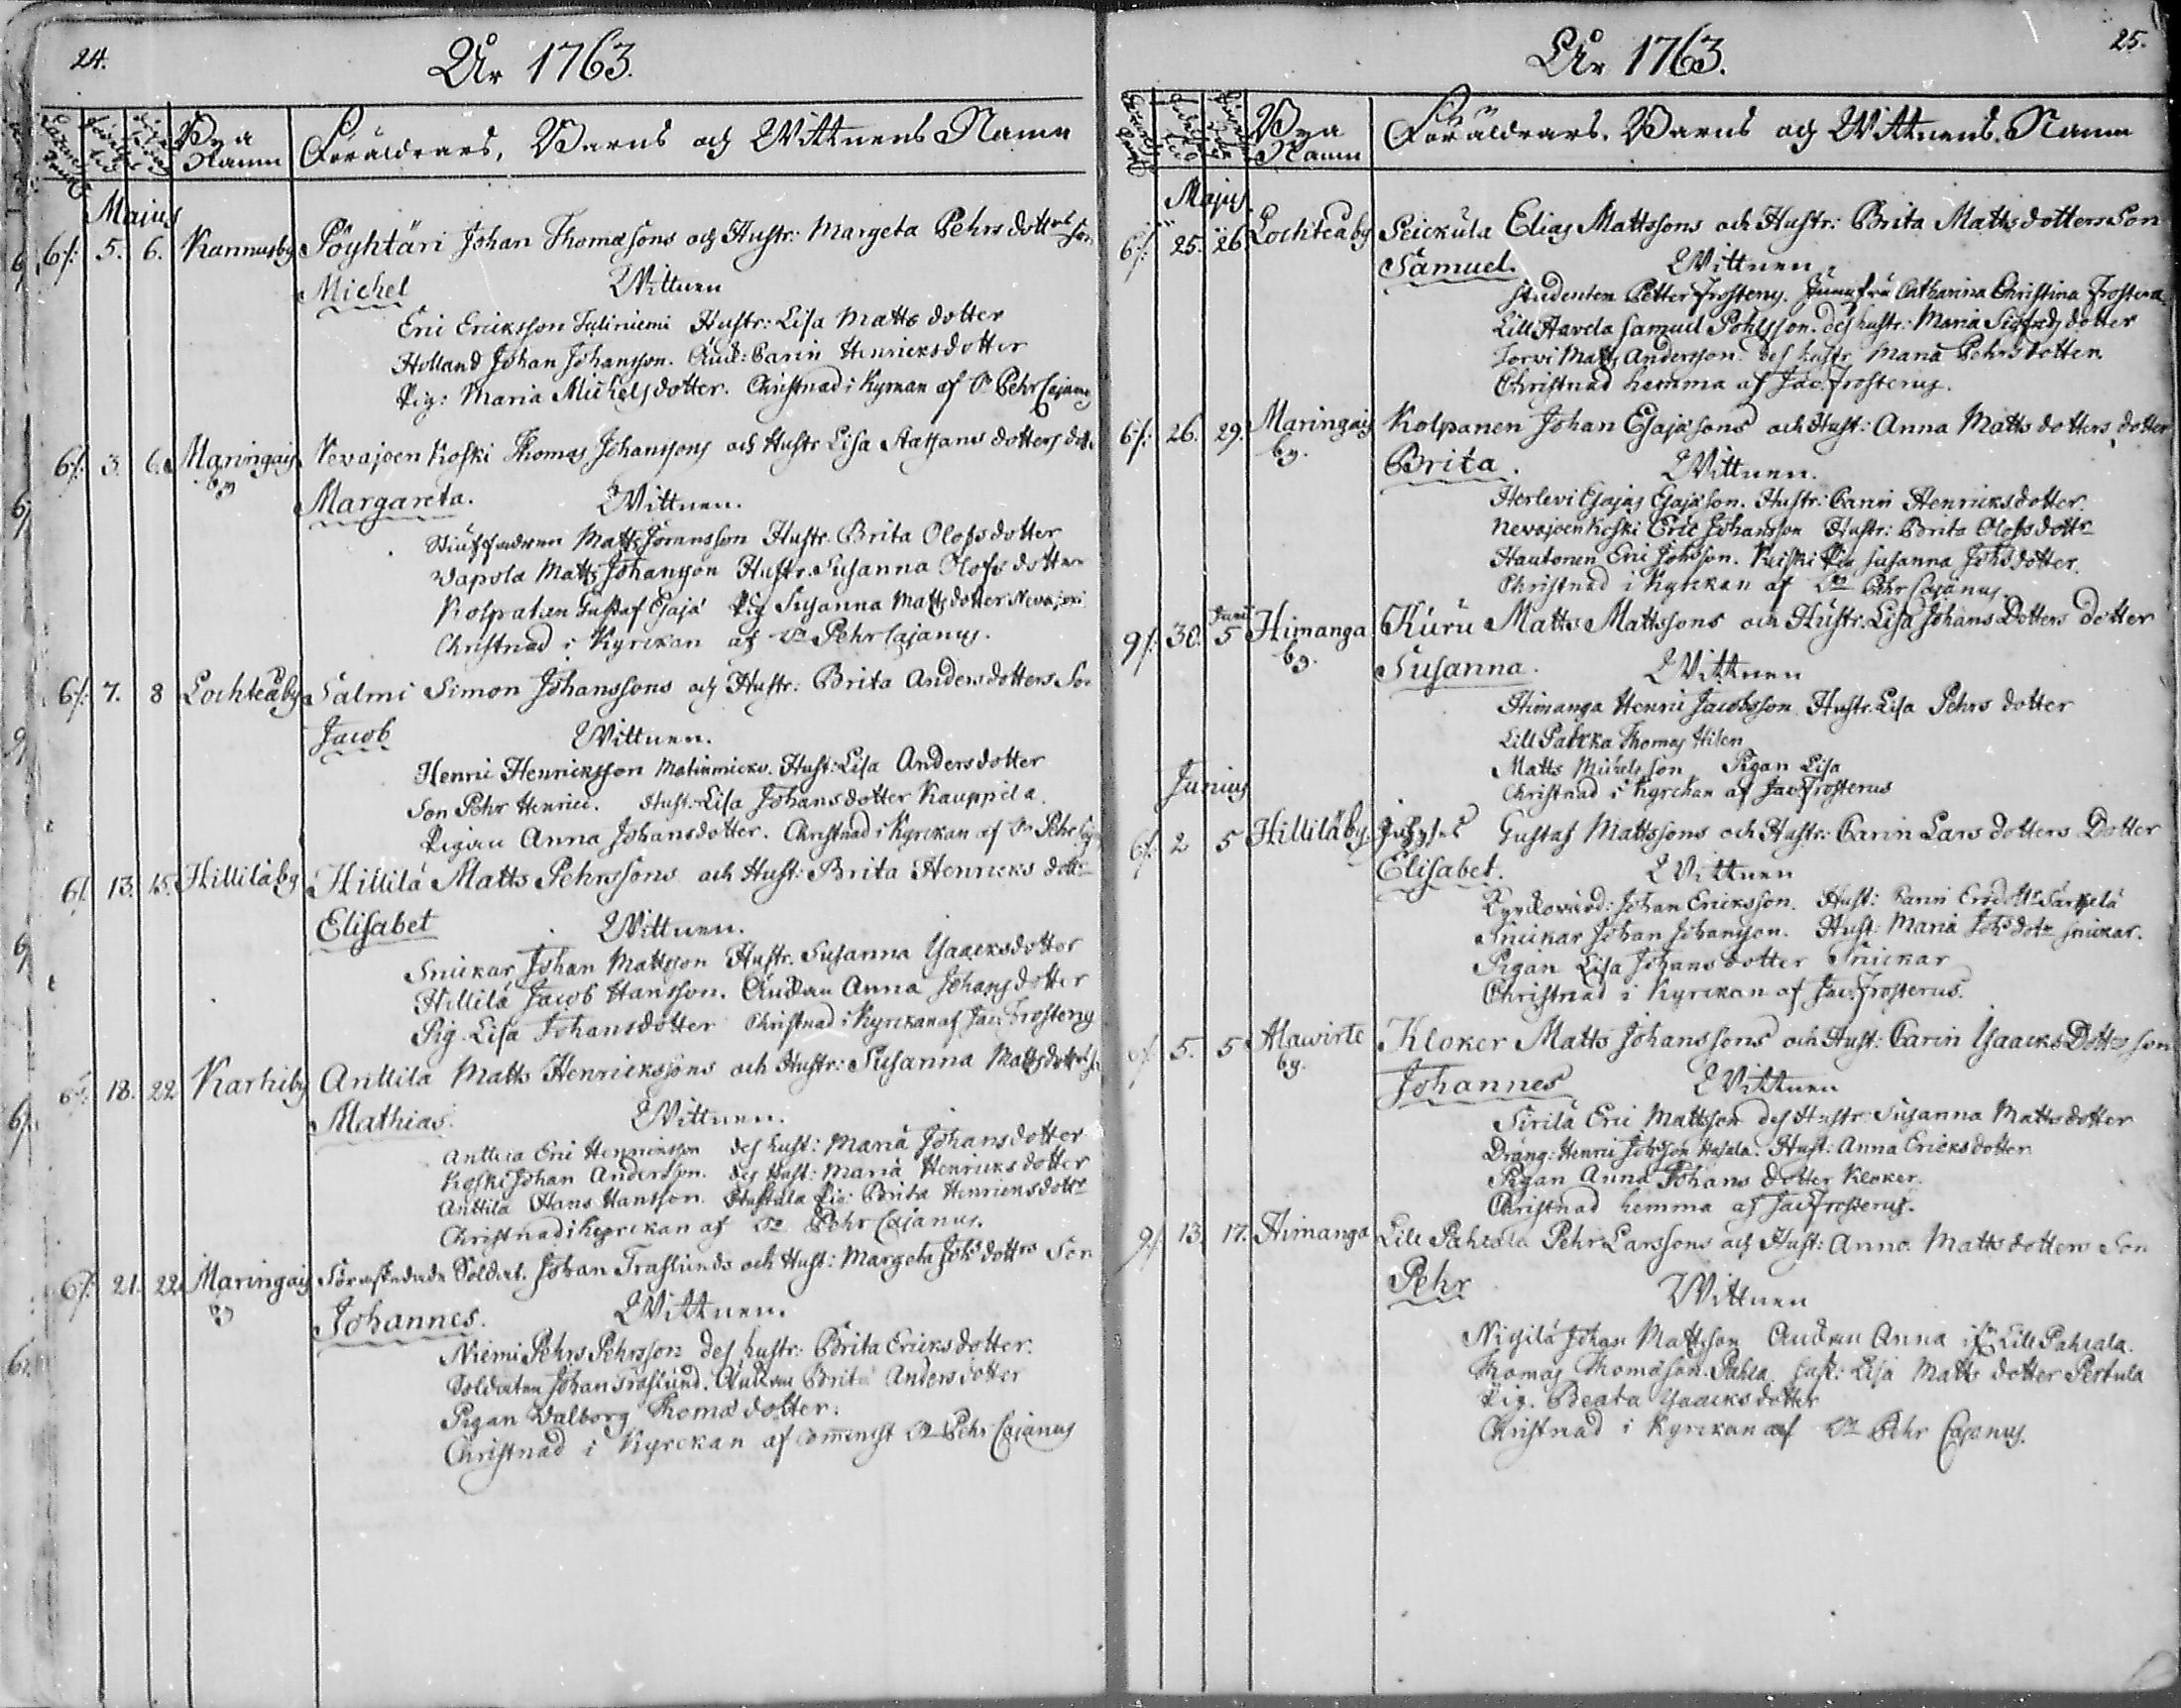 24.
År 1763.
Bya Namn
Föräldrars, Barns och Wittnens Namn
Majus
6/: 5. 6. Kannusby Pöyhtäri Johan Thomæsons och Hustr: Margeta Pehrsdotters Son
Michel Wittnen
Eric Ericksson Hustr: Lisa Matts dotter
Holland Johan Johansson. Änck: Carin Henricksdotter
Pig: Maria Michelsdotter. Christnad i Kyrkan af Dn Pehr Cajanus
6/: 3. 6. Maringais by Nevajoen Koski Thomas Johanssons och Hustr Lisa dotters dotter
Margareta. Wittnen.
Matts Hustr. Brita Olofsdotter
Wapola Matts Johansson Hustr. Susanna Olofsdotter
Gustaf Esajæ Pig Susanna Mattsdotter
Christnad i Kyrckan af Dn Pehr Cajanus.
6/: 7. 8 Lochteåby Salmi Simon Johanssons och Hustr: Brita Andersdotters Son
Jacob Wittnen.
Henric Henricksson Hust: Lisa Andersdotter
Son Pehr Henrici. Hust: Lisa Johansdotter Kauppila.
Pigan Anna Johansdotter. Christnad i Kyrckan af Dn Pehr
6/: 13. 15. Hilliläby Hillilä Matts Pehrssons och Hust: Brita Henricks dotter
Elisabet Wittnen.
Snickar Johan Mattsson Hustr. Susanna Ysaacksdotter
Hillilä Jacob Hansson. Änckan Anna Johansdotter
Pig. Lisa Johansdotter Christnad i Kyrckan af Jac: Frosterus
6/: 18. 22 Karhiby Anttila Matts Henrickssons och Hustr: Susanna Mattsdotters
Mathias. Wittnen.
Anttila Eric Henricksson des hust: Maria Johansdotter
Koski Johan Andersson. des hust: Maria Henricksdotter
Anttila Hans Hansson. Pig: Brita Henricksdotter
Christnad i Kyrckan af Dn Pehr Cajanus.
6/: 21. 22 Maringais by Soldat. Johan Traslunds och Hust: Margeta Johs dotters Son
Johannes. Wittnen.
Niemi Pehrs Pehrsson des hustr: Brita Ericksdotter.
Soldaten Johan Traslund. Änckan Brita Andersdotter
Pigan Walborg Thomædotter.
Christnad i Kyrckan af Dn Pehr Cajanus
25.
År 1763.
Bya Namn
Föräldrars, Barns och Wittnens Namn
Majus
6/: 25. 26 Lochteåby Seickula Elias Mattssons och Hustr: Brita Mattsdotters Son
Samuel. Wittnen
Studenten Petter Frosterus. Jungfru Catharina Christina
Lill Havela Samuel des hustr: Maria Sigfredsdotter
Torvi Matts Andersson. des hustr Maria Pehrsdotter.
Christnad hemma af Jac: Frosterus.
6/: 26. 29. Maringais by. Kolpanen Johan Esajæsons och Hust: Anna Mattsdotters dotter
Brita. Wittnen.
Herlevi Esajas Esajæson. Hustr: Carin Henricksdotter.
Nevajoen Koski Eric Johansson Hustr: Brita Olofsdotter
Hautonen Eric Johsson. Susanna Johsdotter.
Christnad i Kyrckan af Dn Pehr Cajanus.
9/: 30. Junii 5 Himanga by. Kuru Matts Mattssons och Hustr: Lisa Johans Dotters dotter
Susanna. Wittnen
Himanga Henric Jacobsson Hustr. Lisa Pehrs dotter
Lill Thomas
Matts Michelsson Pigan Lisa
Christnad i Kyrckan af Jac: Frosterus
Junius
6/: 2 5 Hilliläby. Gustaf Mattssons och Hustr: Carin Lars dotters Dotter
Elisabet. Wittnen
Johan Ericksson. Hust: Carin
Snickar Johan Johansson. Hust: Maria Johs dotr Snickar.
Pigan Lisa Johansdotter Snickar
Christnad i Kyrckan af Jac: Frosterus.
6/: 5. 5 Alawirte by. Kloker Matts Johanssons och Hust: Carin Ysaacks Dotters son
Johannes Wittnen
Sirilä Eric Mattsson des Hustr Susanna Mattsdotter
Dräng: Henric Johsson Hust: Anna Ericksdotter.
Pigan Anna Johans dotter Kloker.
Christnad hemma af Jac: Frosterus.
9/: 13. 17. Himanga Lill Pahkala Pehr Larssons och Hust: Anna Mattsdotters Son
Pehr Wittnen
Johan Mattsson Änckan Anna Lill Pahkala.
Thomas Thomæson hust: Lisa Matts dotter Pertula
Pig. Beata Ysaacksdotter
Christnad i Kyrckan af Dn Pehr Cajanus.